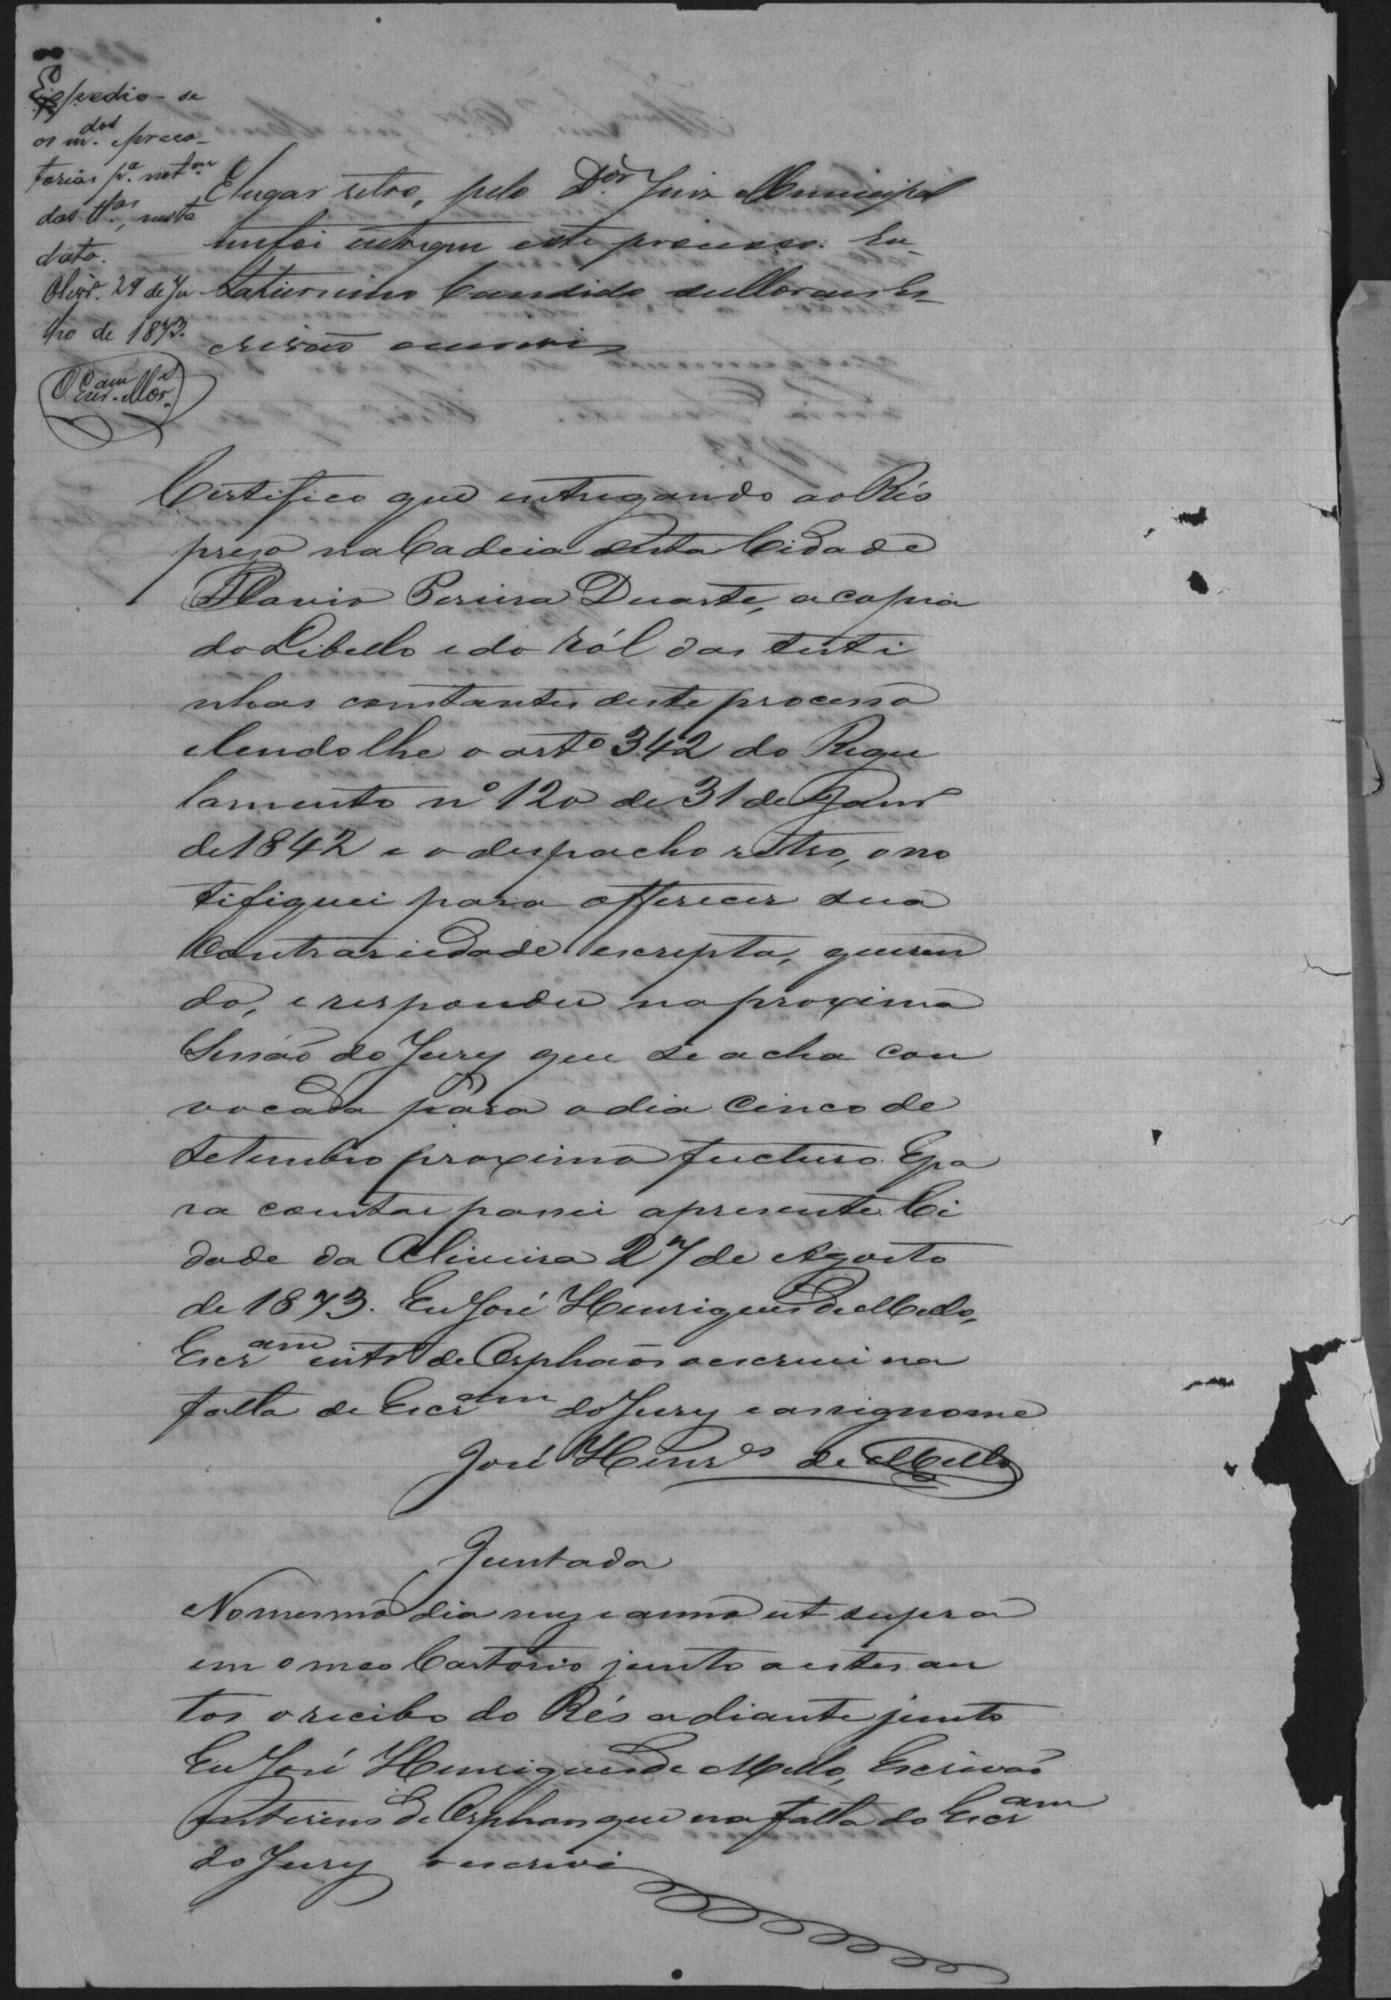 Expedio-se
os m.dos e preca-
torias p.a not.am
das tt.as, nesta
data.
Olivr.a 29 de Ju
lho de 1873.
O Escr.am Mor.s
E lugar retro, pelo D.or Juiz Municipal
me foi entregue este processo. Eu
Saturnino Candido de Moraes Es-
crivão o escrevi
Certifico que entregando ao Réo
prezo na Cadeia desta Cidade
Flavio Pereira Duarte, a copia
do Libello e do ról das testi
nhas constantes deste processo
e lendo lhe o art.o 342 do Regu
lamento n.o 120 de 31 de Janr.o
de 1842 e o despacho retro, o no
tifiquei para offerecer sua
Contrariedade escripta, queren
do, e responder na proxima
Sessão do Jury que se acha con
vocada para o dia Cinco de
Setembro proximo fucturo. E pa
ra constar passei a presente. Ci
dade da Oliveira 27 de Agosto
de 1873. Eu José Henriques de Mello,
Escr.am int.o de Orphaõs o escrevi na
falta de Escr.am do Jury e assigno me
José Henr.es de Mello
Juntada
No mesmo dia mez e anno ut supra
em o meo Cartorio junto a estes au
tos o recibo do Réo a diante junto
Eu José Henriques de Mello, Escrivaõ
Interino de Orphans que na falta do Escr.am
do Jury o escrevi